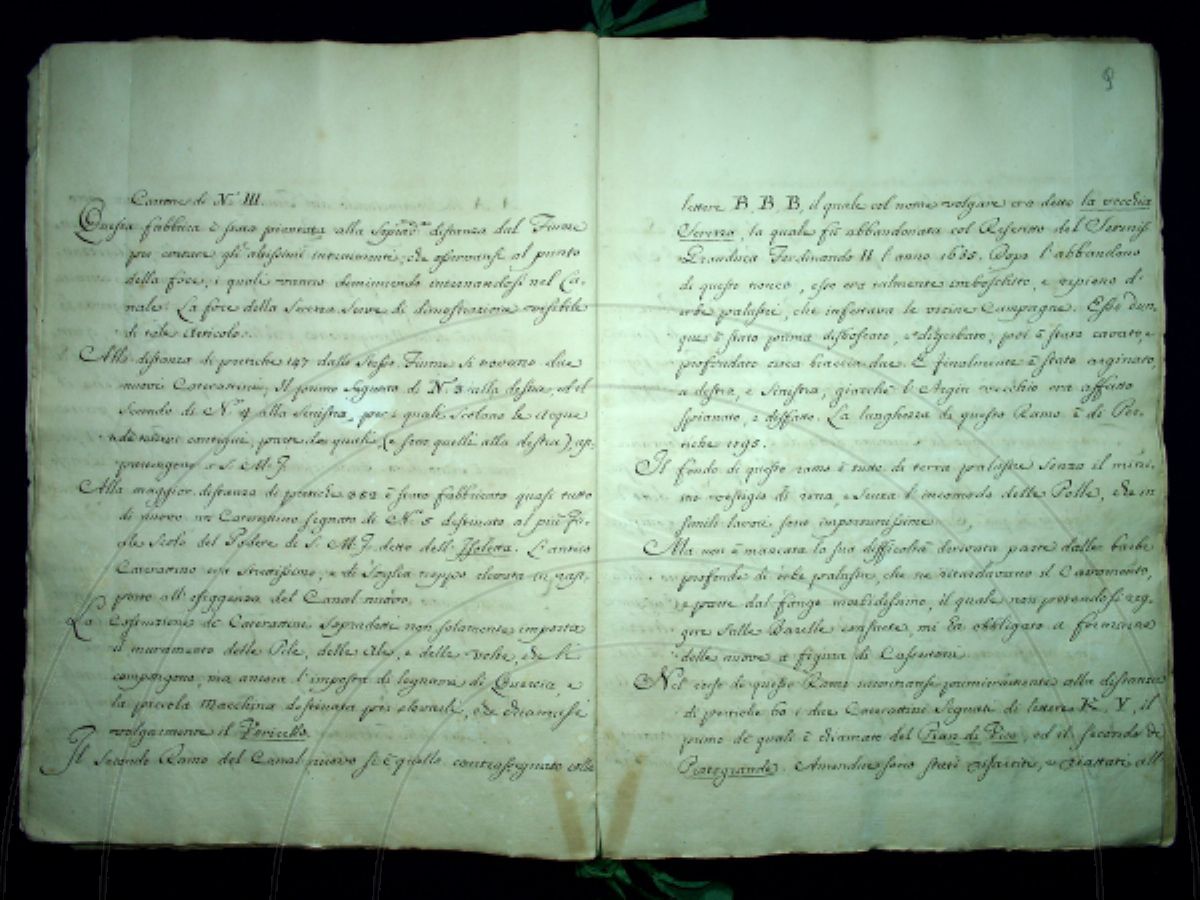 Cartone di N.º III.
Questa fabbrica è stata piantata alla distanza dal Fiume
per evitare gli altissimi interrimenti, che osservansi al punto
della foce, i quali vanno diminuendo internandosi nel Ca-
nale. La foce della Serezza serve di dimostrazione visibile
di tale Articolo.
Alla distanza di pertiche 147 dallo stesso Fiume si trovano due
nuovi Caterattini; Il primo segnato di N.º 3 alla destra, ed il
secondo di N.º 4 alla sinistra, per i quali scolano le acque
de terreni contigui, parte dei quali (e sono quelli alla destra), ap-
partengono a S. M. I.
Alla maggior distanza di pertiche 382 è stato fabbricato quasi tutto
di nuovo un Caterattino segnato di N.º 5 destinato al più
scolo del Podere di S. M. I. detto dell' Isoletta. L' antico
Caterattino era strettissimo, e di soglia troppo elevata in rap-
porto all' esiggenza del Canal nuovo.
La Costruzione de Caterattini sopradetti non solamente importa
il muramento delle Pile, delle Ale, e delle volte, che li
compongono, ma ancora l' imposta di legname di Quercia, e
la piccola Macchina destinata per elevarli, che chiamasi
volgarmente il
Il secondo Ramo del Canal nuovo si è quello contrassegnato colle
9
lettere B, B, B, il quale col nome volgare era detto la vecchia
Serezza, la quale fù abbandonata col Rescritto del Sereniss.
Granduca Ferdinando II l' anno 1635. Dopo l' abbandono
di questo tronco, esso era talmente imboschito, e ripieno d'
erbe palustri, che infestava le vicine Campagne. Esso dun-
que è stato prima disboscato, e diserbato, poi è stato cavato, e
profondato circa braccia due. E finalmente è stato arginato,
a destra, e sinistra, giacchè l' Argin vecchio era affatto
spianato, e disfatto. La lunghezza di questo Ramo è di Per-
tiche 1195.
Il fondo di questo ramo è tutto di terra palustre senza il mini-
mo vestigio di rena e senza l' incomodo delle Polle, che in
simili lavori sono importunissime.
Ma non è mancata la sua difficoltà derivata parte dalle barbe
profonde di erbe palustri, che ne ritardavano il Cavamento,
e parte dal fango morbidissimo, il quale non potendosi reg-
gere sulle Barelle consuete, mi ha obbligato a formarne
delle nuove a figura di Cassettoni.
Nel corso di questo Ramo incontransi primieramente alla distanza
di pertiche 60 i due Caterattini segnati di lettere K. V, il
primo de quali è chiamato del Pian di Pisa, ed il secondo di
Pratogrande. Amendue sono stati risarciti, e riattati all